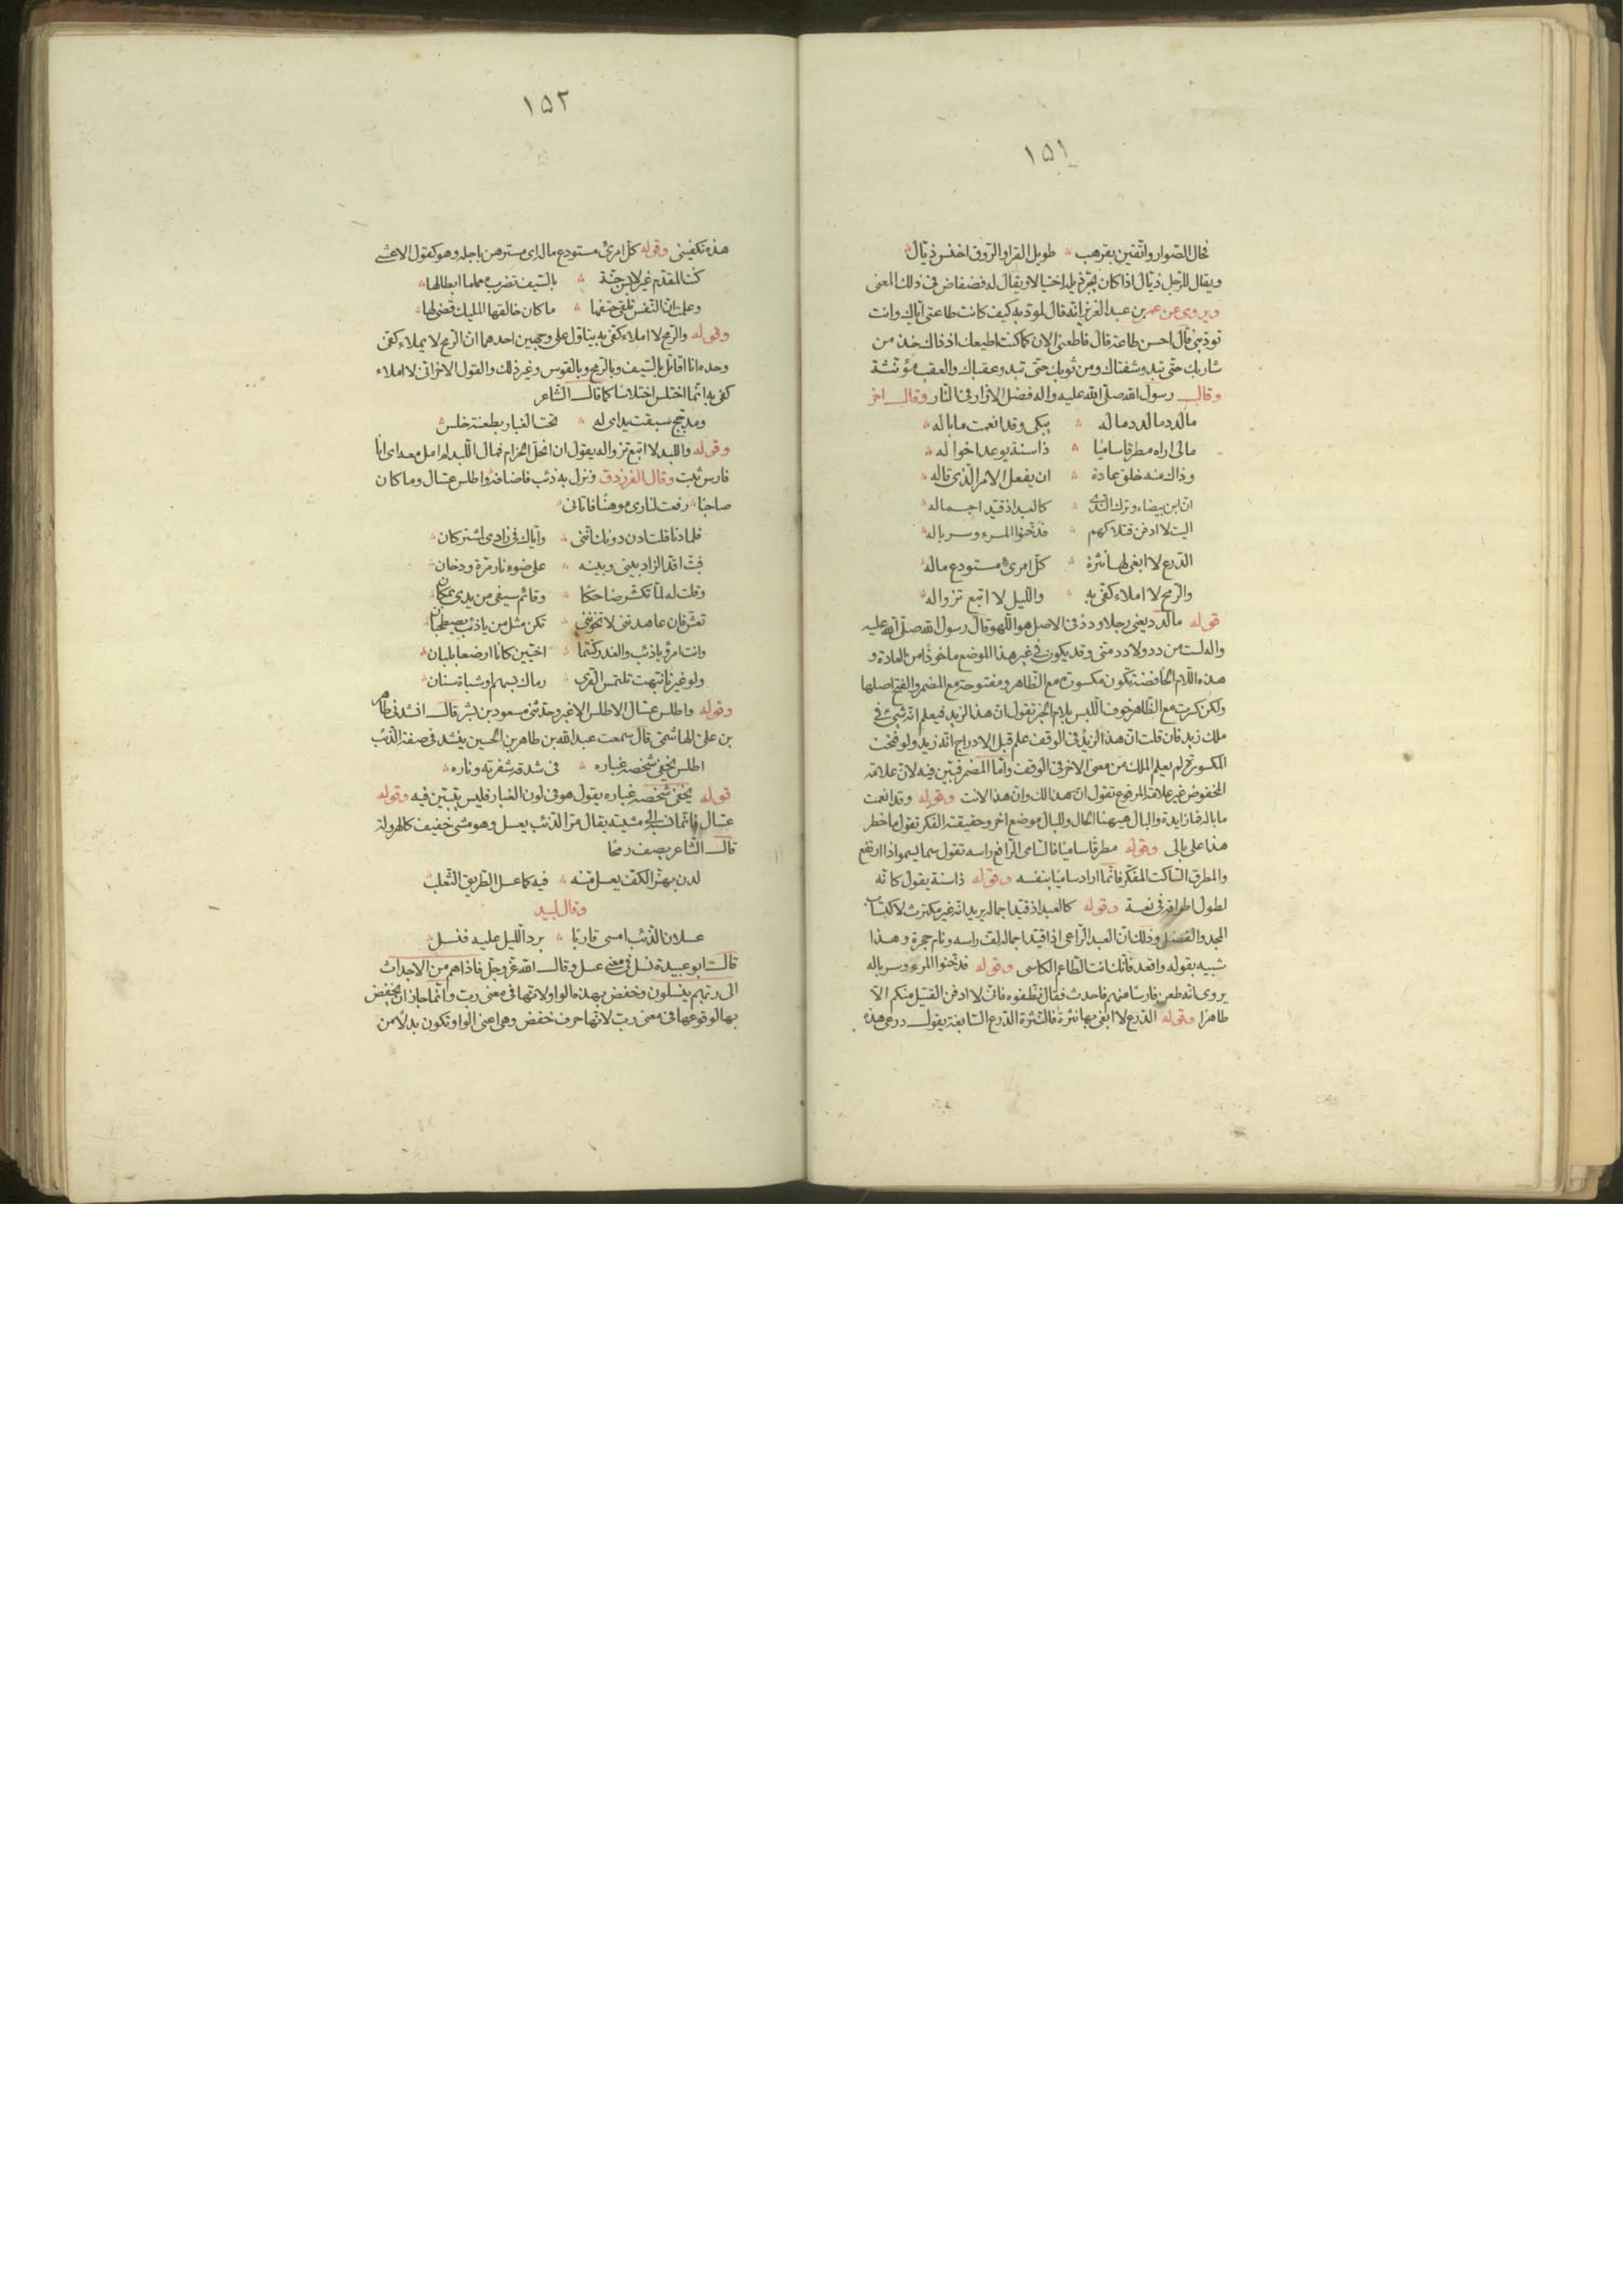 ١٥١
فجال الصوار واتقين بقرهب طويل القرا والروق اخنس ذيال
ويقال للرجل ذيال اذا كان يجر ذيله اختيالا ويقال له فضفاض في ذلك المعنى
ويروى عن عمر بن عبد العزيز انه قال لمودبه كيف كانت طاعتى اياك وانت
تودبنى قال احسن طاعة قال فاطعنى الان كما كنت اطيعك اذ ذاك خذ من
شاربك حتى تبدو شفتاك ومن ثوبك حتى تبدو عقباك والعقب مؤنثة
وقال رسول الله صلى الله عليه واله فضل الازار فى النار وقال اخر
ما لدد ما لدد ما له يبكى وقد انعمت ما باله
مالى اراه مطرقا ساميا ذا سنة يوعد اخواله
وذاك منه خلق عادة ان يفعل الامر الذى قاله
ان ابن بيضاء وترك الندى كالعبد اذ قيد اجماله
اليت لا ادفن قتلاكم فدخنوا المرء وسرباله
الدرع لا ابغى لها نثرة كل امرئ مستودع ماله
والرمح لا املاء كفى به والليل لا اتبع تزواله
قوله ما لدد يعنى رجلا ودد فى الاصل هو اللهو قال رسول الله صلى الله عليه
واله لست من دد ولا دد منى وقد يكون فى غير هذا الموضع ماخوذا من العادة و
هذه اللام الخافضة تكون مكسورة مع الظاهر ومفتوحة مع المضمر والفتح اصلها
ولكن كسرت مع الظاهر خوف اللبس بلام الخبر تقول ان هذا لزيد فيعلم انه شئ فى
ملك زيد فان قلت ان هذا لزيد فى الوقف علم قبل الادراج انه زيد ولو فتحت
المكسورة لم يعلم الملك من معنى الاخر فى الوقف واما المضمر فبين فيه لان علامة
المخفوض غير علامة المرفوع تقول ان هذا لك وان هذا لانت وقوله وقد انعمت
ما باله فما زايدة والبال هيهنا الحال وللبال موضع اخر وحقيقته الفكر تقول ما خطر
هذا على بالى وقوله مطرقا ساميا فالسامى الرافع راسه تقول سما يسمو اذا ارتفع
والمطرق الساكت المفكر فانما اراد ساميا بنفسه وقوله ذا سنة يقول كانه
لطول اطراقه فى نعسة وقوله كالعبد اذ قيد اجماله يريد انه غير مكترث لاكتساب
المجد والفضل وذلك ان العبد الراعى اذا قيد اجماله لف راسه ونام حجرة وهذا
شبيه بقوله واقعد فانك انت الطاعم الكاسى وقوله فدخنوا المرء وسرباله
يروى انه طعن فارسا منهم فاحدث فقال نظفوه فانى لا ادفن القتيل منكم الا
طاهرا وقوله الدرع لا ابغى بها نثرة فالنثرة الدرع السابغة يقول درعى هذه
١٥٢
هذه تكفينى وقوله كل امرئ مستودع ماله اى مسترهن باجله وهو كقول الاعشى
كنت المقدم غير لابس جنة بالسيف تضرب معلما ابطالها
وعلمت ان النفس تلقى حتفها ما كان خالقها المليك قضى لها
وقوله والرمح لا املاء كفى به يتاول على وجهين احدهما ان الرمح لا يملاء كفى
وحده انا اقاتل بالسيف وبالرمح وبالقوس وغير ذلك والقول الاخر انى لا املاء
كفى به انما اختلس اختلاسا كما قال الشاعر
ومدجج سبقت يداى له تحت الغبار بطعنة خلس
وقوله واللبد لا اتبع تزواله يقول ان انحل الحزام فمال اللبد لم امل معه اى انا
فارس ثبت وقال الفرزدق ونزل به ذئب فاضافه واطلس عسال وما كان
صاحبا رفعت لنارى موهنا فاتانى
فلما دنا قلت ادن دونك اننى واياك فى زادى لمشتركان
فبت اقد الزاد بينى وبينه على ضوء نار مرة ودخان
وقلت له لما تكشر ضاحكا وقائم سيفى من يدى بمكان
تعش فان عاهدتنى لا تخوننى نكن مثل من ياذئب يصطحبان
وانت امرؤ ياذئب والغدر كنتما اخيين كانا ارضعا بلبان
ولو غيرنا نبهت تلتمس القرى رماك بسهم او شباة سنان
وقوله واطلس عسال الاطلس الاغبر وحدثنى مسعود بن بشر قال انشدنى طاهر
بن على الهاشمى قال سمعت عبد الله بن طاهر بن الحسين ينشد فى صفة الذئب
اطلس يخفى شخصه غباره فى شدقه شفرته وناره
قوله يخفى شخصه غباره يقول هو فى لون الغبار فليس يتبين فيه وقوله
عسال فانما نسبه الى مشيته يقال مر الذئب يعسل وهو مشى خفيف كالهرولة
قال الشاعر يصف رمحا
لدن بهز الكف يعسل متنه فيه كما عسل الطريق الثعلب
وقال لبيد
عسلان الذئب امسى قاربا برد الليل عليه فنسل
قال ابو عبيدة نسل فى معنى عسل وقال الله عز وجل فاذا هم من الاجداث
الى ربهم ينسلون وخفض بهذه الواو لانها فى معنى رب وانما جاز ان يخفض
بها لوقوعها فى معنى رب لانها حرف خفض وهى اعنى الواو تكون بدلا من